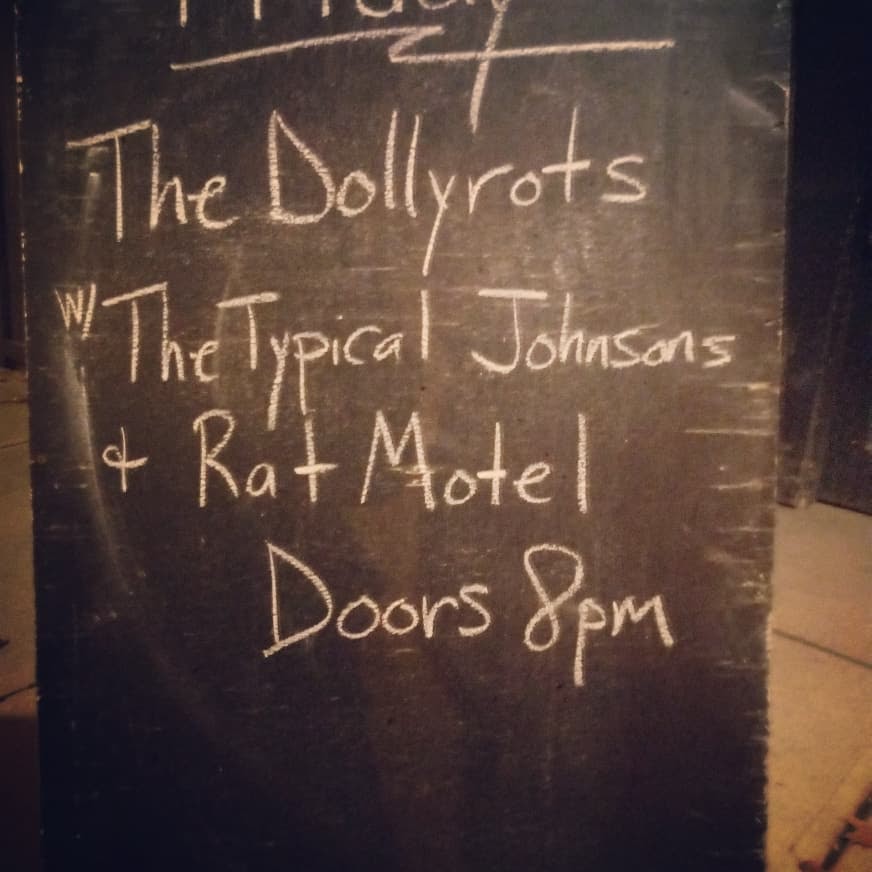 Friday
The Dollyrots
w/ The Typical Johnsons
& Rat Motel
Doors 8pm